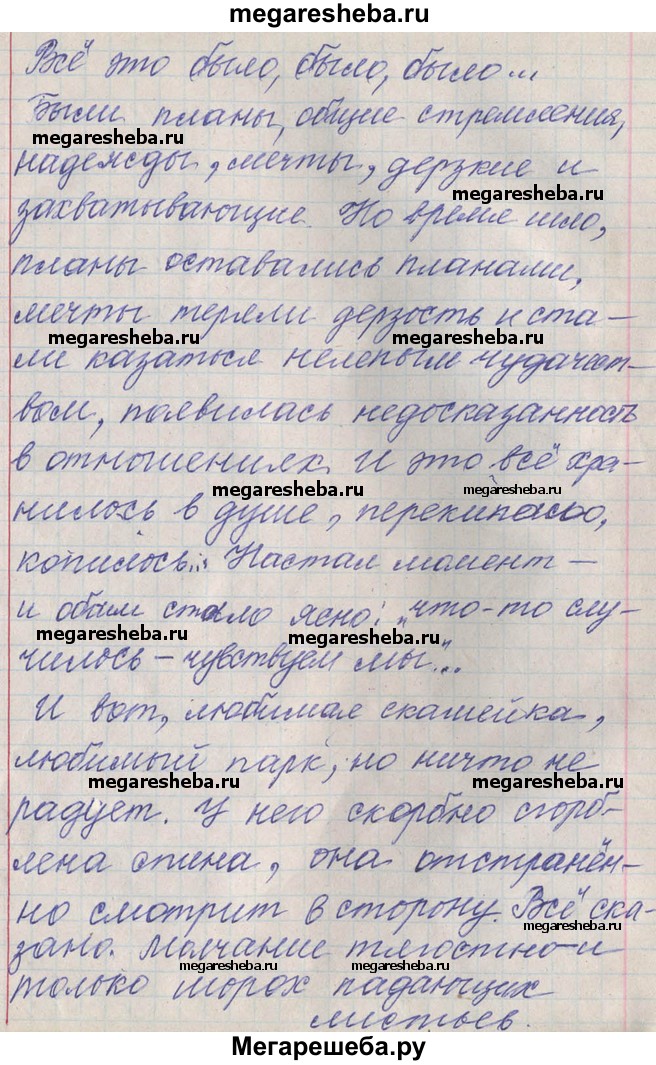 megaresheba.ru
Всё это было, было, было...
Были планы, общие стремления,
megaresheba.ru
надежды, мечты, дерзкие и
megaresheba.ru
захватывающие. Но время шло,
планы оставались планами,
мечты теряли дерзость и ста-
megaresheba.ru megaresheba.ru
ли казаться нелепым чудачест-
вом, появилась недосказанность
в отношениях. И это всё хра-
megaresheba.ru megaresheba.ru
нилось в душе, перекипало,
копилось... Настал момент –
и обоим стало ясно: „что-то слу-
megaresheba.ru megaresheba.ru
чилось – чувствуем мы"...
И вот, любимая скамейка,
любимый парк, но ничто не
megaresheba.ru megaresheba.ru
радует. У него скорбно сгорб-
лена спина, она отстранён-
но смотрит в сторону. Всё ска-
megaresheba.ru
зано. Молчание тягостно – и
megaresheba.ru megaresheba.ru
только шорох падающих
листьев.
Мегарешеба.ру